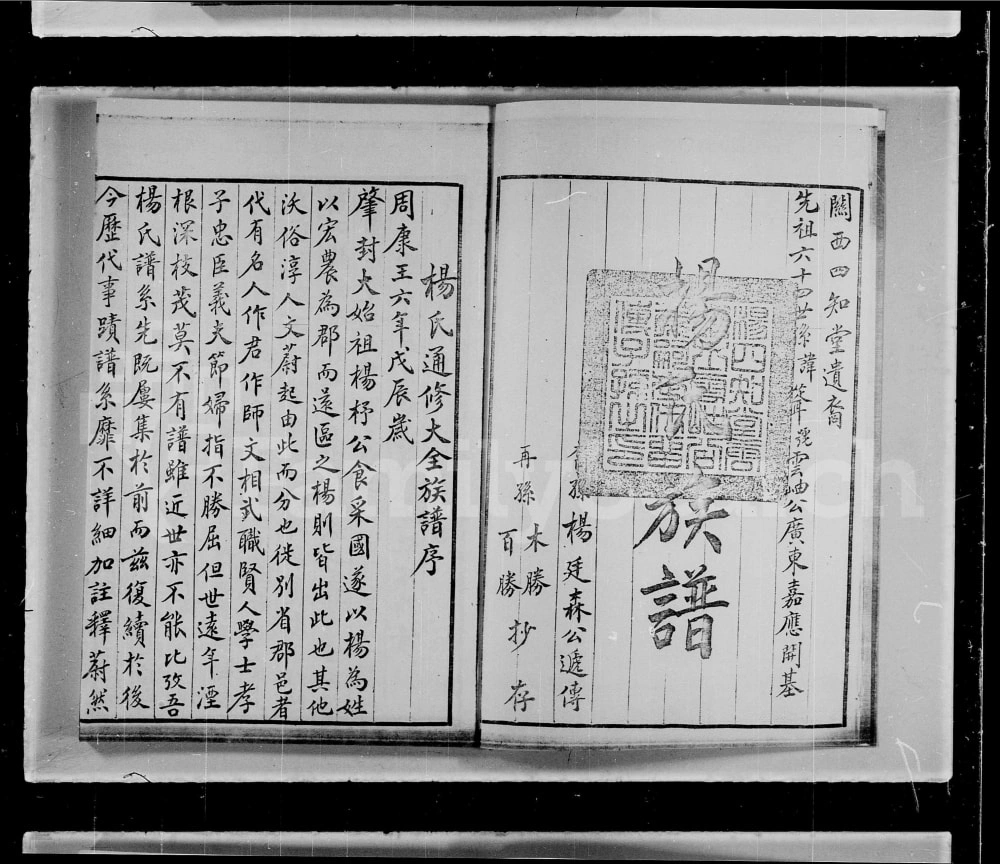 關西四知堂遺裔
先祖六十四世系諱 號雲岫公廣東嘉應開基
楊氏族譜
孫楊廷森公遞傳
再孫 木勝 百勝 抄存
楊氏通修大全族譜序
周康王六年戊辰歲
肇封大始祖楊杼公食采國遂以楊為姓
以宏農為郡而遠區之楊則皆出此也其他
沃俗淳人文蔚起由此而分也從別省郡邑者
代有名人作君作師文相武職賢人學士孝
子忠臣義夫節婦指不勝屈但世遠年湮
根深枝茂莫不有譜雖近世亦不能比攷吾
楊氏譜系先既屢集於前而茲復續於後
今歷代事蹟譜系靡不詳細加註釋蔚然